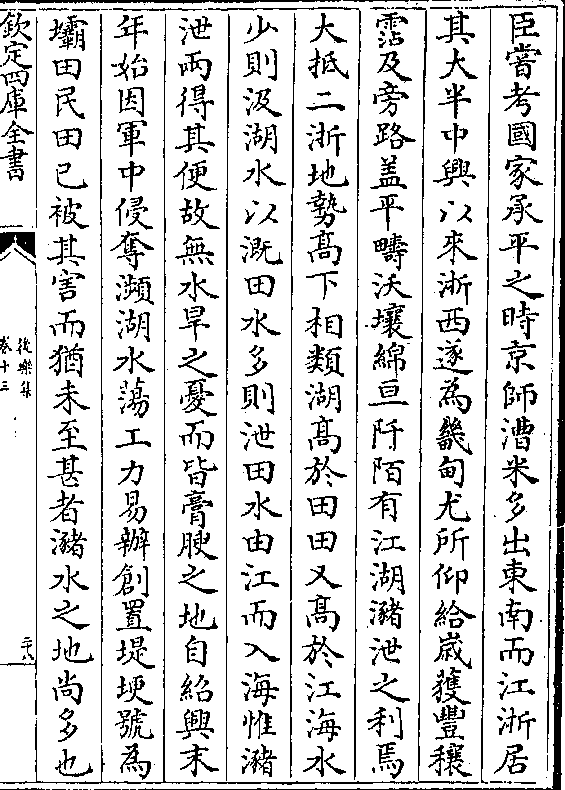 臣嘗考國家承平之時京師漕米多出東南而江浙居
其大半中興以來浙西遂為畿甸尤所仰給歲獲豐穰
霑及旁路蓋平疇沃壤綿亘阡陌有江湖瀦泄之利焉
大抵二浙地勢髙下相類湖髙於田田又髙於江海水
少則汲湖水以溉田水多則泄田水由江而入海惟瀦
泄兩得其便故無水旱之憂而皆膏腴之地自紹興末
年始因軍中侵奪瀕湖水蕩工力易辦創置堤埂號為
壩田民田已被其害而猶未至甚者瀦水之地尚多也
欽定四庫全書
後樂集
卷十三
二八